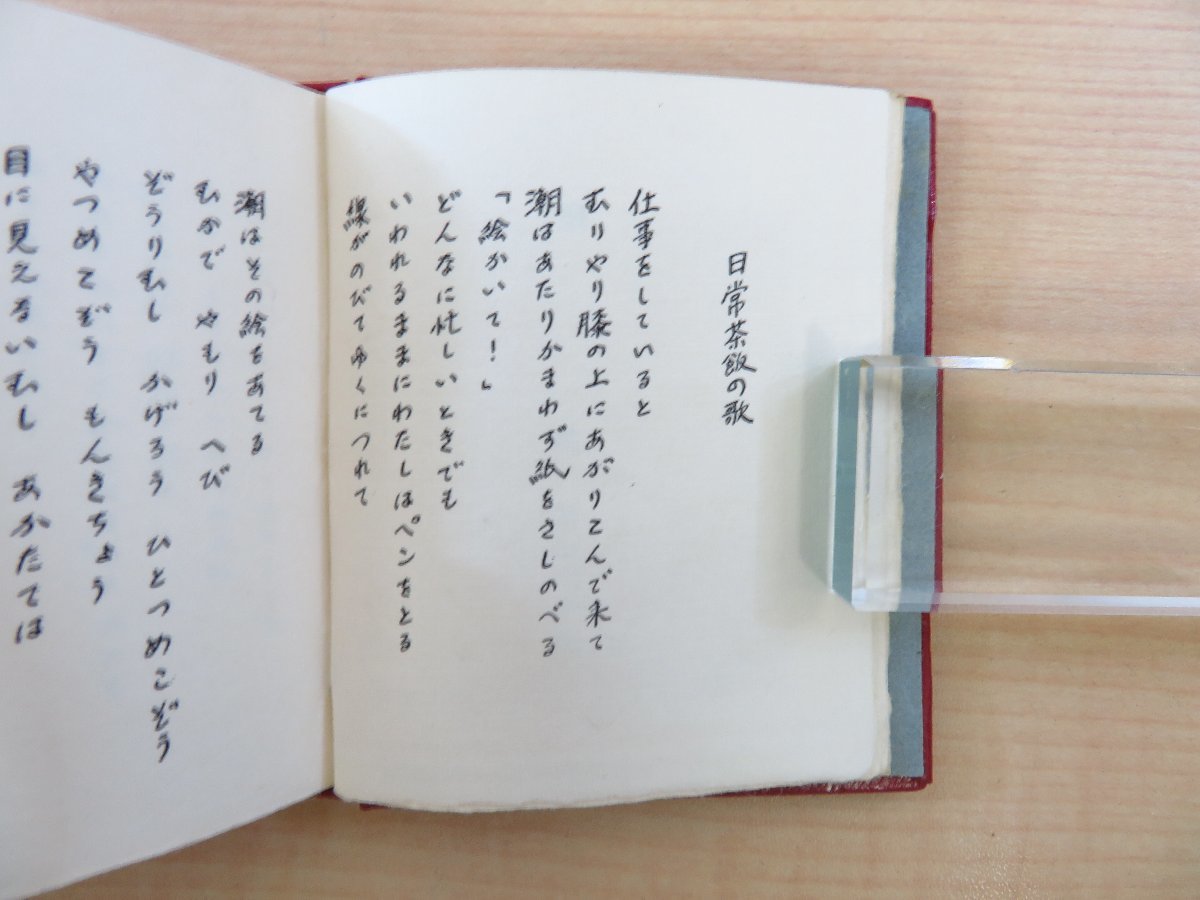 日常茶飯の歌
仕事をしていると
むりやり膝の上にあがりこんで来て
潮はあたりかまわず紙をさしのべる
「絵かいて！」
どんなに忙しいときでも
いわれるままにわたしはペンをとる
線がのびてゆくにつれて
潮はその絵をあてる
むかで　やもり　へび
ぞうりむし　かげろう　ひとつめこぞう
やつめてぞう　もんきちょう
目に見えるいむし　あかたては